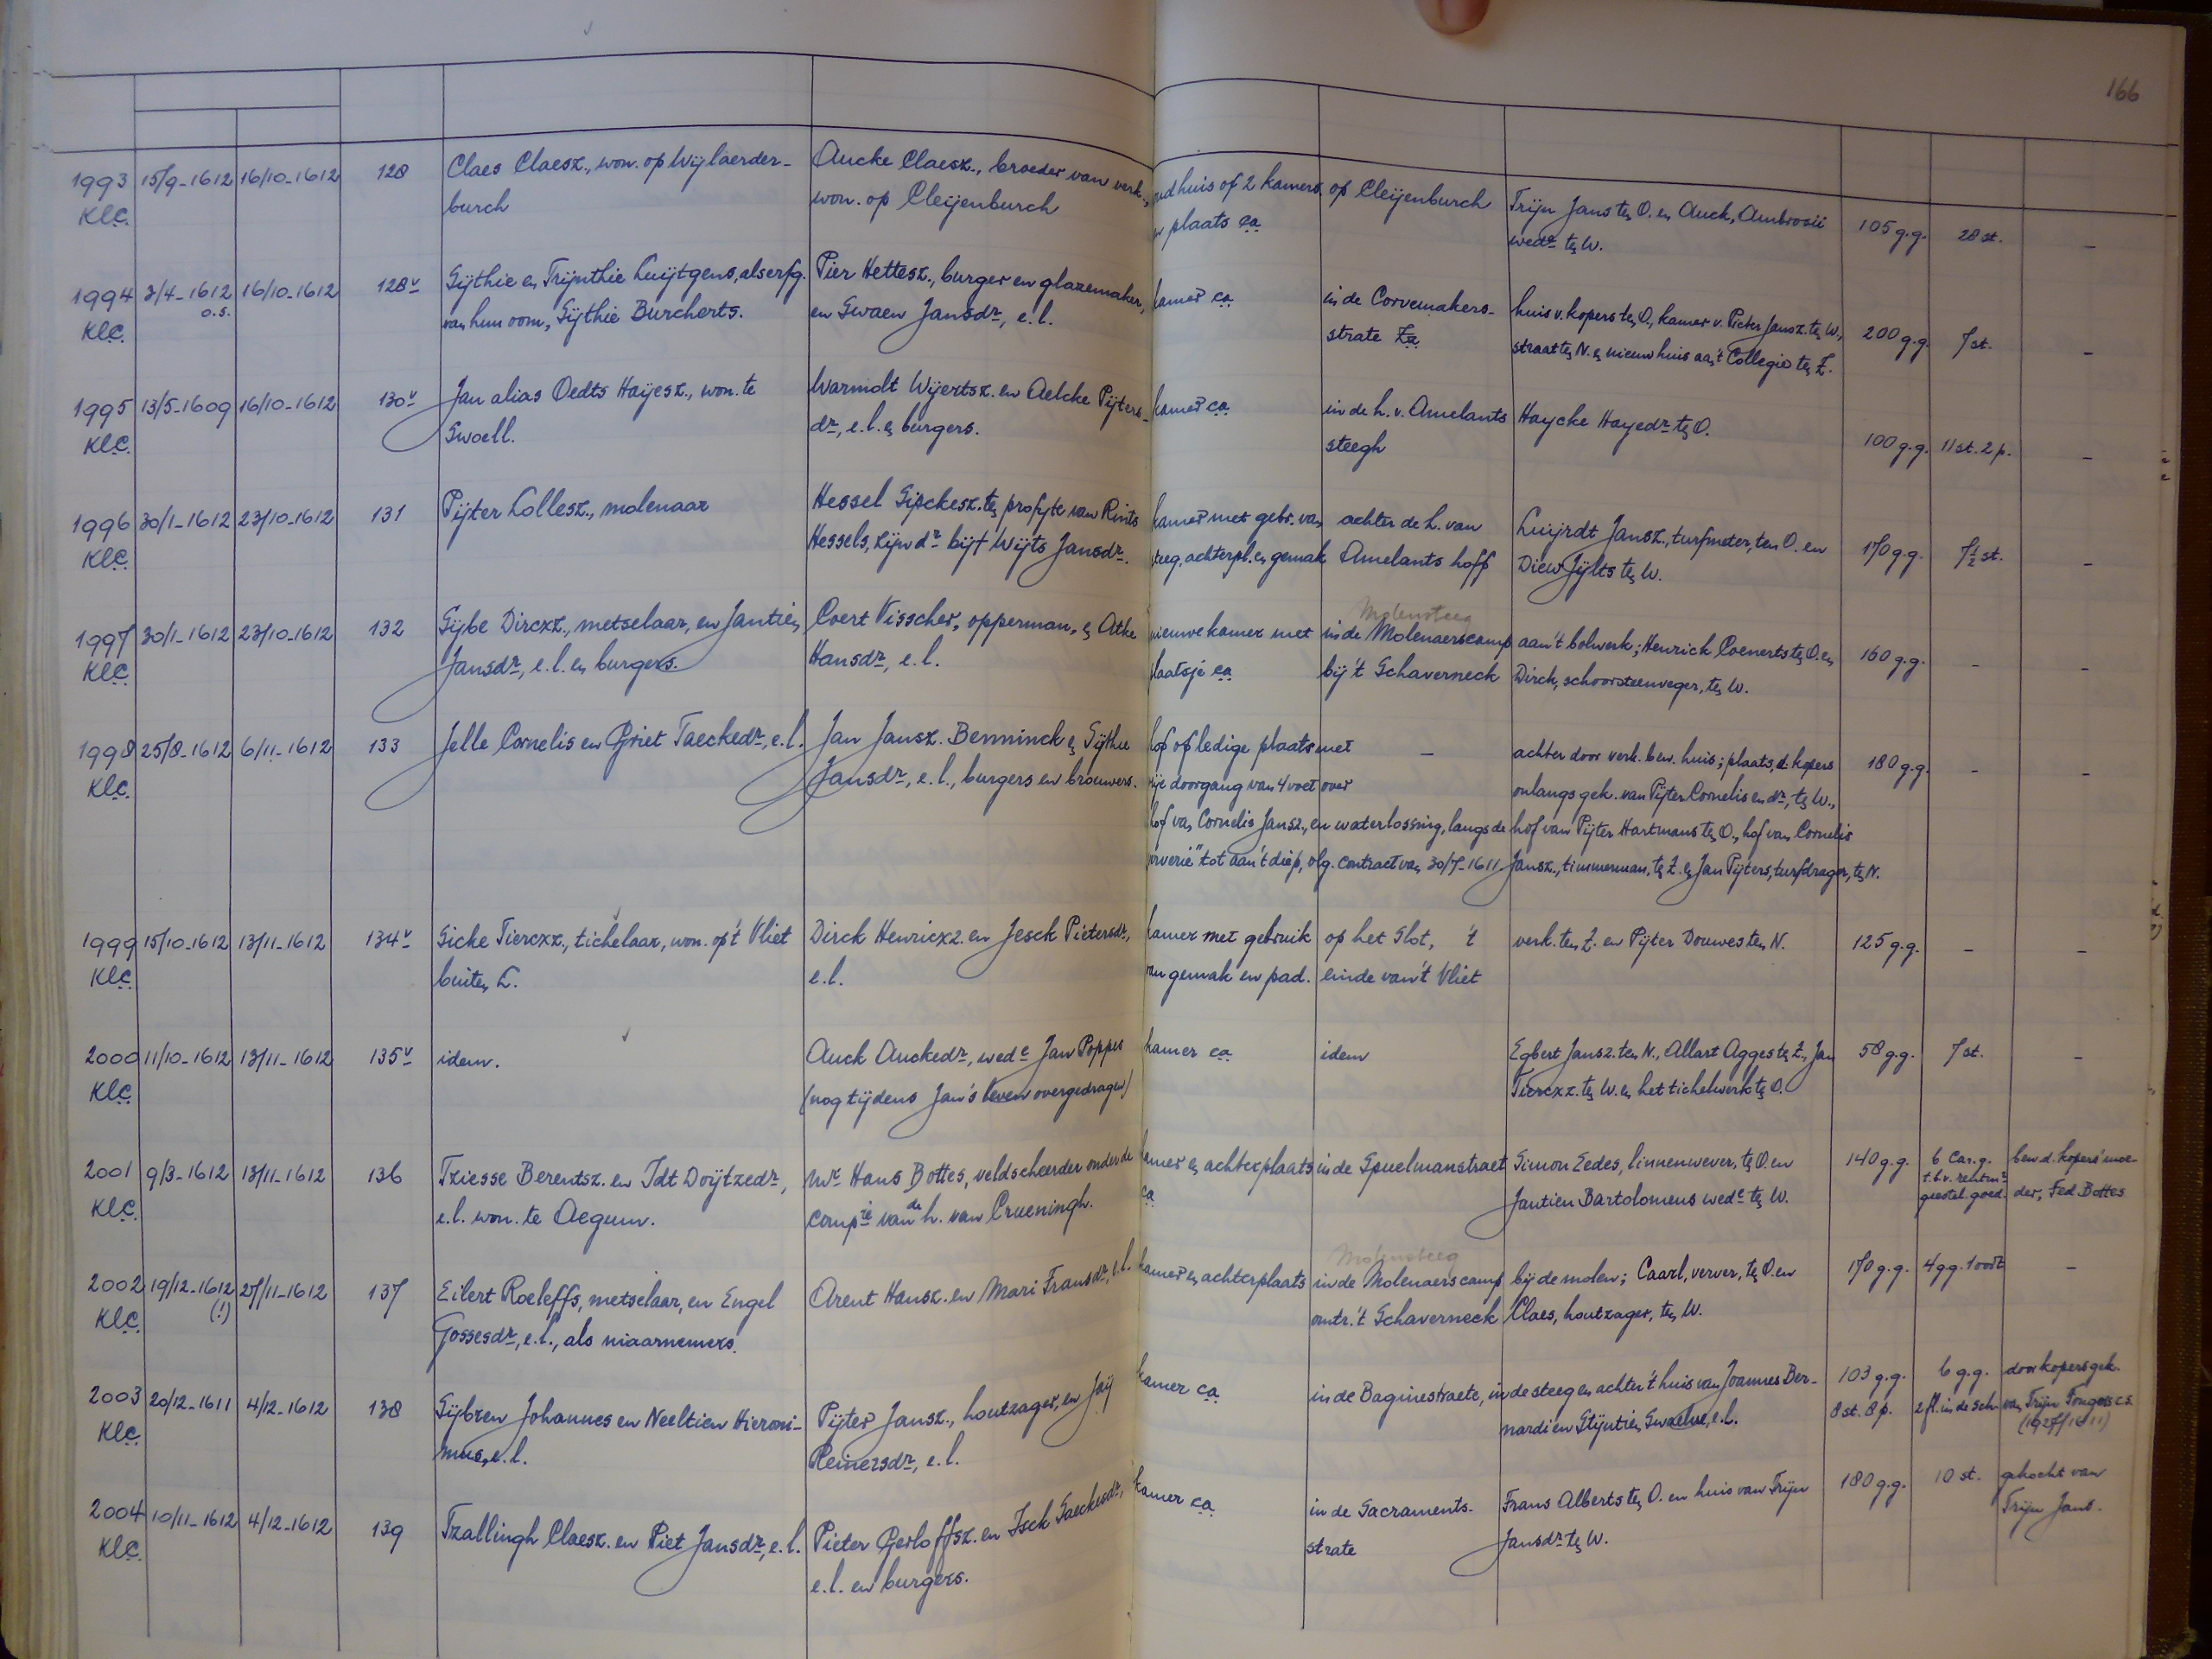 166
1993 15/9-1612 16/10-1612 128 Claes Claesz., won. op Wijlaerder- Aucke Claesz., broeder van verk., oudhuis of 2 kamers op Cleijenburch Trijn Jans ten O. en Auck, Ambrosii 105 g.g. 28 st. -
KlC. burch won. op Cleijenburch en plaats ca. wedr ten W.
1994 3/4-1612 16/10-1612 128v Sijthie en Trijnthie Luijtgens, als erfg. Pier Hettesz., burger en glazemaker, kamer ca. in de Corvemakers- huis v. kopers ten O., kamer v. Pieter Jansz. ten W., 200 g.g. 7 st. -
KlC. o.s. van hun oom, Sijthie Burcherts. en Swaen Jansdr, e.l. strate Za. straat ten N. en nieuw huis aan 't Collegie ten Z.
1995 13/5-1609 16/10-1612 130v Jan alias Oedts Haijesz., won. te Warmolt Wijertsz. en Aelcke Pijters- kamer ca. in de h. v. Amelants Haycke Hayedr ten O. 100 g.g. 11 st. 2 p. -
KlC. Swoell. dr, e.l. en burgers. steegh
1996 30/1-1612 23/10-1612 131 Pijter Lollesz., molenaar Hessel Sijckesz. ten profijte van Rints kamer met gebr. van achter de h. van Luijrdt Jansz., turfmeter, ten O. en 170 g.g. 7½ st. -
KlC. Hessels, zijn dr bij Wijts Jansdr. steeg, achterpl. en gemak Amelants hoff Diew Jijlts ten W.
Molensteeg
1997 30/1-1612 23/10-1612 132 Sijbe Dircxz., metselaar, en Jantien Coert Visscher, opperman, en Atke nieuwe kamer met in de Molenaerscamp aan 't bolwerk; Henrick Coenerts ten O. en 160 g.g. - -
KlC. Jansdr, e.l. en burgers. Hansdr, e.l. plaatsje ca. bij 't Schaverneck Dirck, schoorsteenveger, ten W.
1998 25/8-1612 6/11-1612 133 Jelle Cornelis en Griet Taeckedr, e.l. Jan Jansz. Benninck en Sijthie hof of ledige plaats met - achter door verk. bew. huis; plaats, d. kopers 180 g.g. - -
KlC. Jansdr, e.l., burgers en brouwers. vrije doorgang van 4 voet over onlangs gek. van Pijter Cornelis en dr, ten W.,
hof van Cornelis Jansz., en waterlossing, langs de hof van Pijter Hartmans ten O., hof van Cornelis
ververie" tot aan 't diep, vlg. contract van 30/7-1611 Jansz., timmerman, ten Z. en Jan Pijters, turfdrager, ten N.
1999 15/10-1612 13/11-1612 134v Sicke Tiercxz., tichelaar, won. op 't Vliet Dirck Henricxz. en Jesck Pietersdr, kamer met gebruik op het Slot, 't verk. ten Z. en Pijter Douwes ten N. 125 g.g. - -
KlC. buiten L. e.l. van gemak en pad. einde van 't Vliet
2000 11/10-1612 13/11-1612 135v idem. Auck Auckedr, wede Jan Poppes kamer ca. idem Egbert Jansz. ten N., Allart Agges ten Z., Jan 58 g.g. 7 st. -
KlC. (nog tijdens Jan's leven overgedragen) Tiercxz. ten W. en het tichelwerk ten O.
2001 9/3-1612 13/11-1612 136 Tziesse Berentsz. en Idt Doijtzedr, Mr Hans Bottes, veldscheerder onder de kamer en achterplaats in de Spuelmanstraet Simon Eedes, linnenwever, ten O. en 140 g.g. 6 Car. g. bew. d. kopers' moe-
KlC. e.l. won. te Aegum. compie van de h. van Crueningh. ca. Jantien Bartolomeus wede ten W. t.b.v. rentmr geestel. goed. der, Fed Bottes
Molensteeg
2002 19/12-1612 27/11-1612 137 Eilert Roeleffs, metselaar, en Engel Arent Hansz. en Mari Fransdr, e.l. kamer en achterplaats in de Molenaerscamp bij de molen; Caarl, verver, ten O. en 170 g.g. 4 g.g. 1 oort -
KlC. (!) Gossesdr, e.l., als niaarnemers. omtr. 't Schaverneck Claes, houtzager, ten W.
2003 20/12-1611 4/12-1612 138 Sijbren Johannes en Neeltien Hieroni- Pijter Jansz., houtzager, en Jaij kamer ca. in de Baginestraete, in de steeg en achter 't huis van Joannes Ber- 103 g.g. 6 g.g. door kopers gek.
KlC. mus, e.l. Reinersdr, e.l. nardi en Stijntien Swaelue, e.l. 8 st. 8 p. 2 fl. in de sch. van Trijn Tonges c.s.
(1927/1611)
2004 10/11-1612 4/12-1612 139 Tzallingh Claesz. en Piet Jansdr, e.l. Pieter Gerloffsz. en Isck Saeckesdr, kamer ca. in de Sacraments- Frans Alberts ten O. en huis van Trijn 180 g.g. 10 st. gekocht van
KlC. e.l. en burgers. strate Jansdr ten W. Trijn Jans.